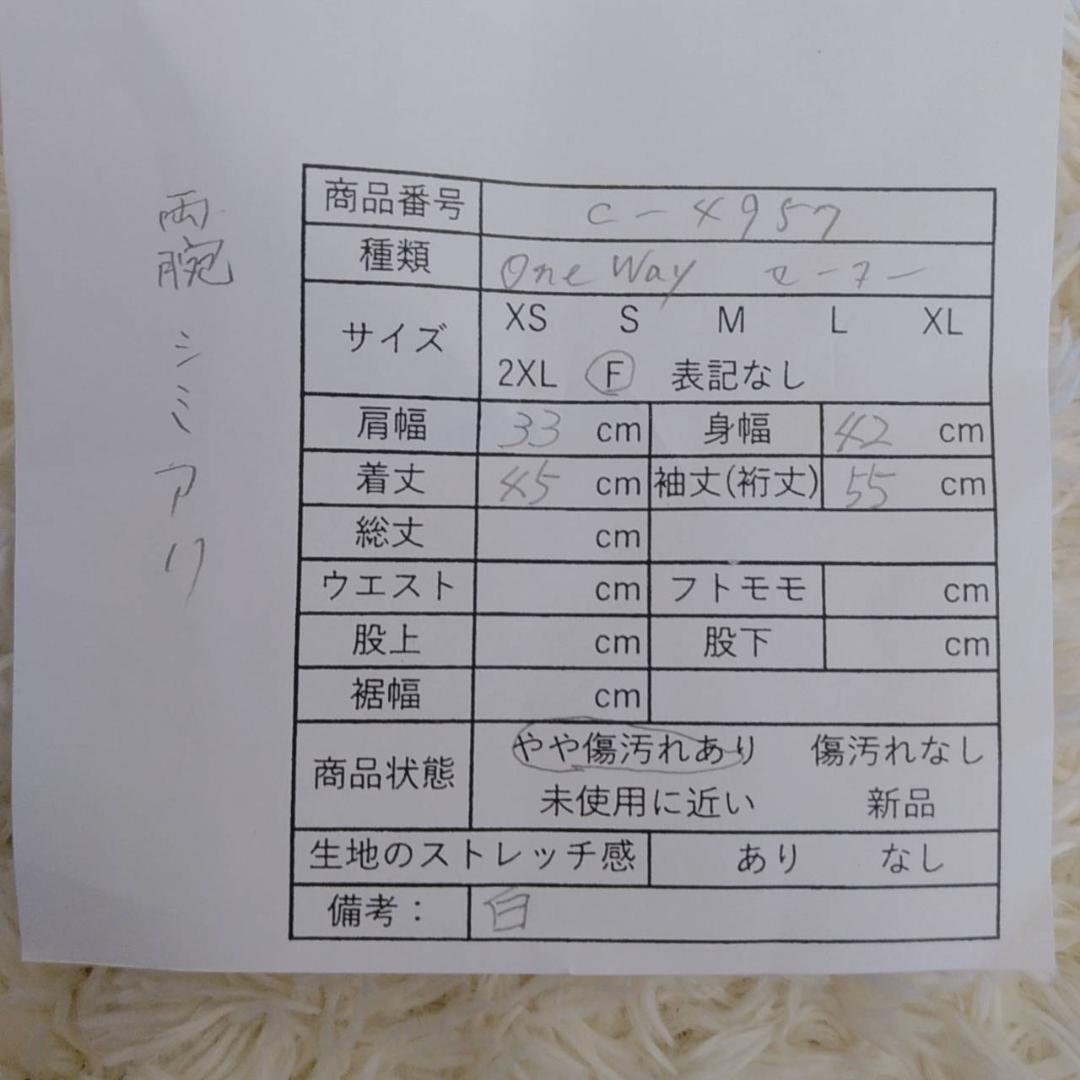 両腕 シミアリ
商品番号 C-4957
種類 One Way セーター
サイズ XS S M L XL
2XL F 表記なし
肩幅 33 cm 身幅 42 cm
着丈 45 cm 袖丈(裄丈) 55 cm
総丈 cm
ウエスト cm フトモモ cm
股上 cm 股下 cm
裾幅 cm
商品状態 やや傷汚れあり 傷汚れなし
未使用に近い 新品
生地のストレッチ感 あり なし
備考： 白